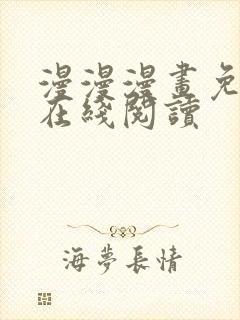 漫漫漫畫免
在綫閱讀
海夢長情